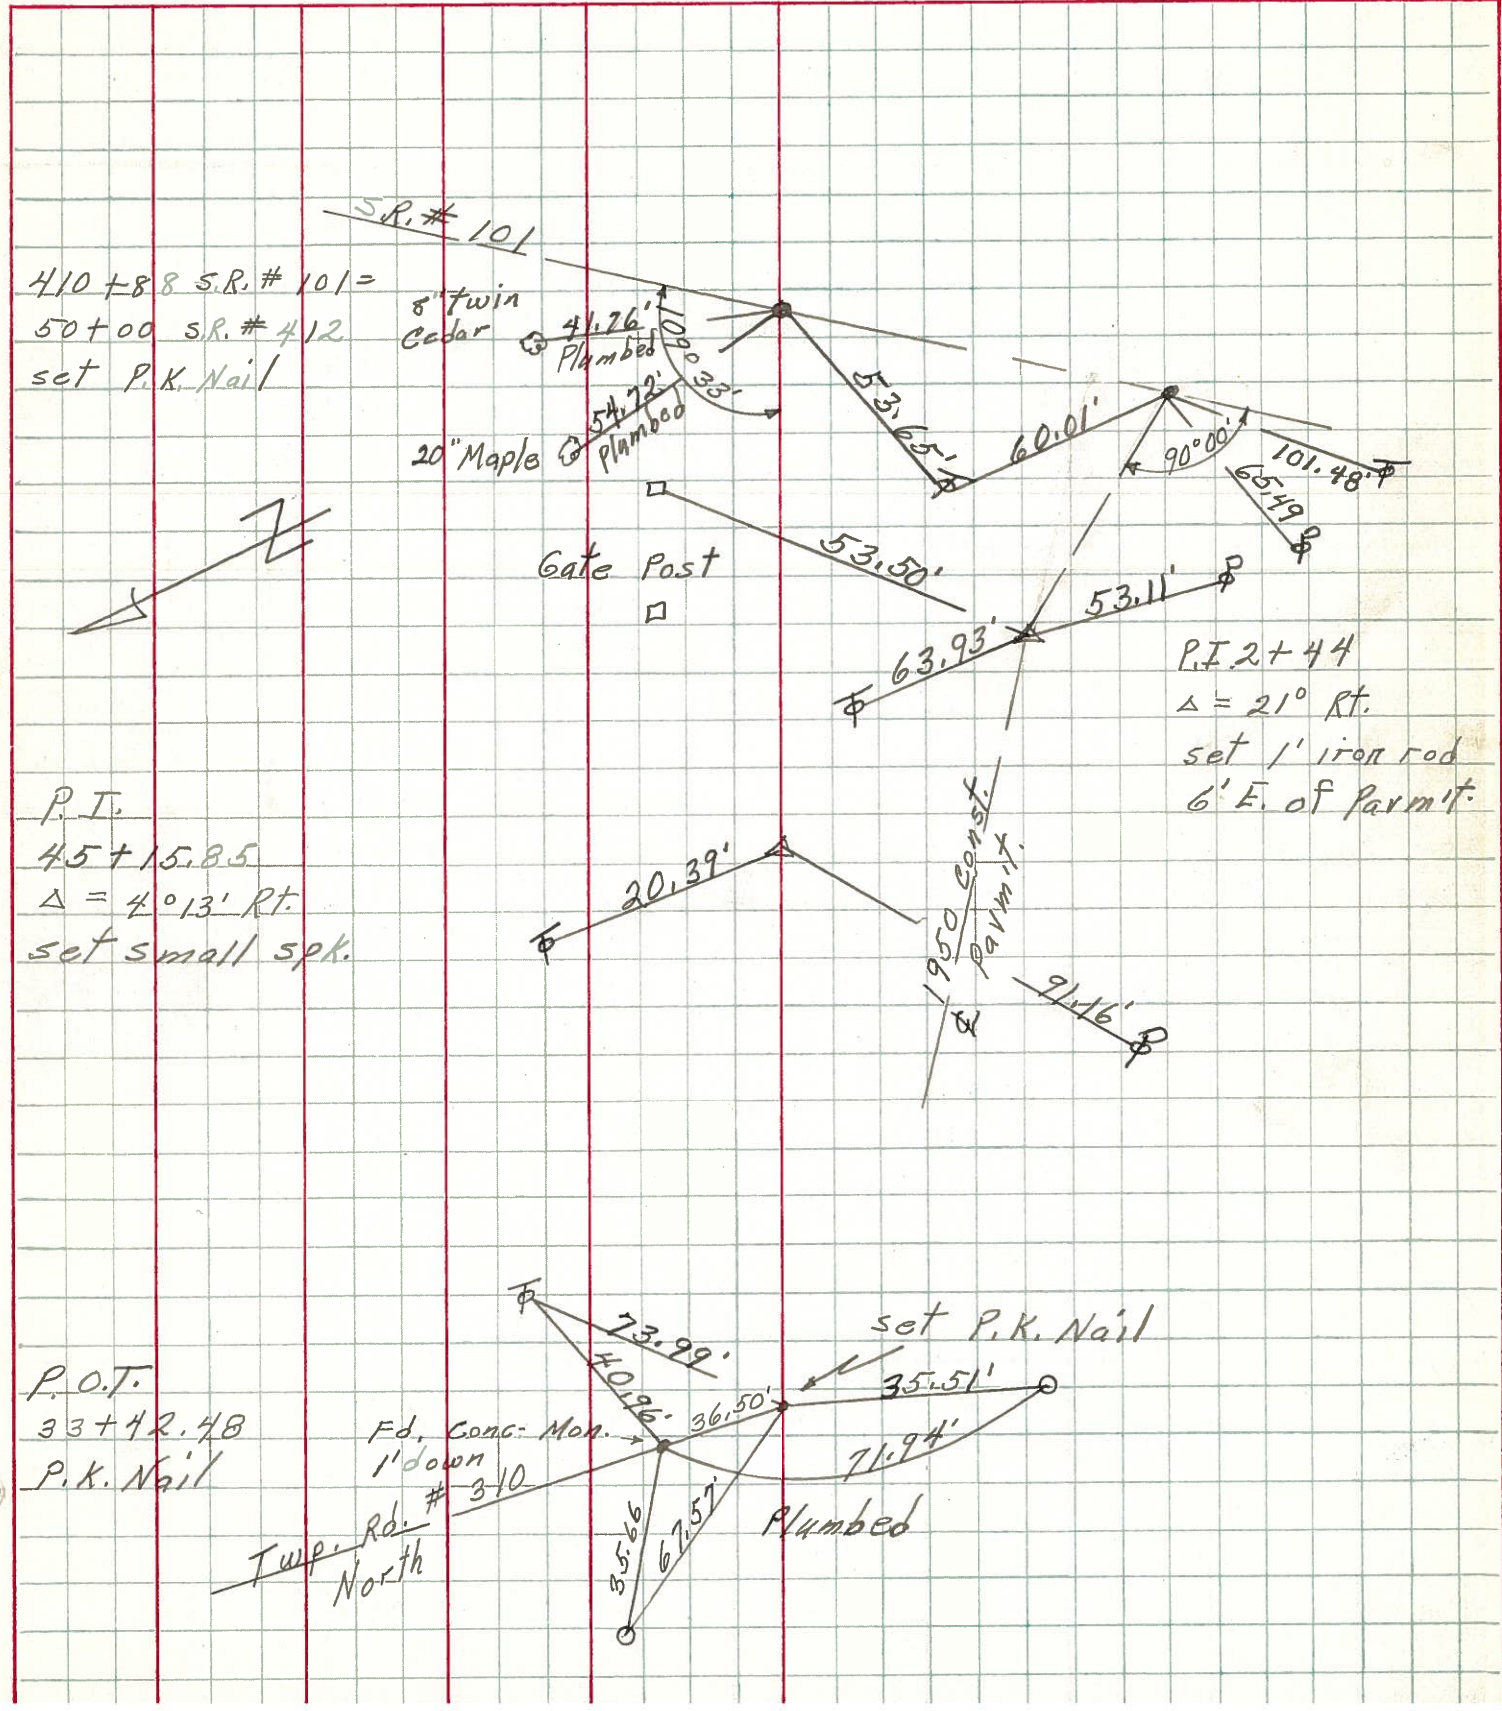 S.R. # 101
410+88 S.R. # 101 =
50+00 S.R. # 412
set P.K. Nail
8" twin
Cedar
41.76'
Plumbed
109° 33'
54.72'
Plumbed
20" Maple
53.65'
60.01'
90°00'
101.48'
65.49
N
Gate Post
53.50'
53.11'
63.93'
P.I. 2+44
Δ = 21° Rt.
set 1' iron rod
6' E. of Parm't.
P.I.
45+15.85
Δ = 4°13' Rt.
set small spk.
20.39'
1950 Const.
Parm't.
℄
91.16'
73.99'
40.96'
set P.K. Nail
35.51'
P.O.T.
33+42.48
P.K. Nail
Fd. Conc. Mon.
1' down
36.50'
71.94'
Twp. Rd. # 310
North
35.66
67.57'
Plumbed